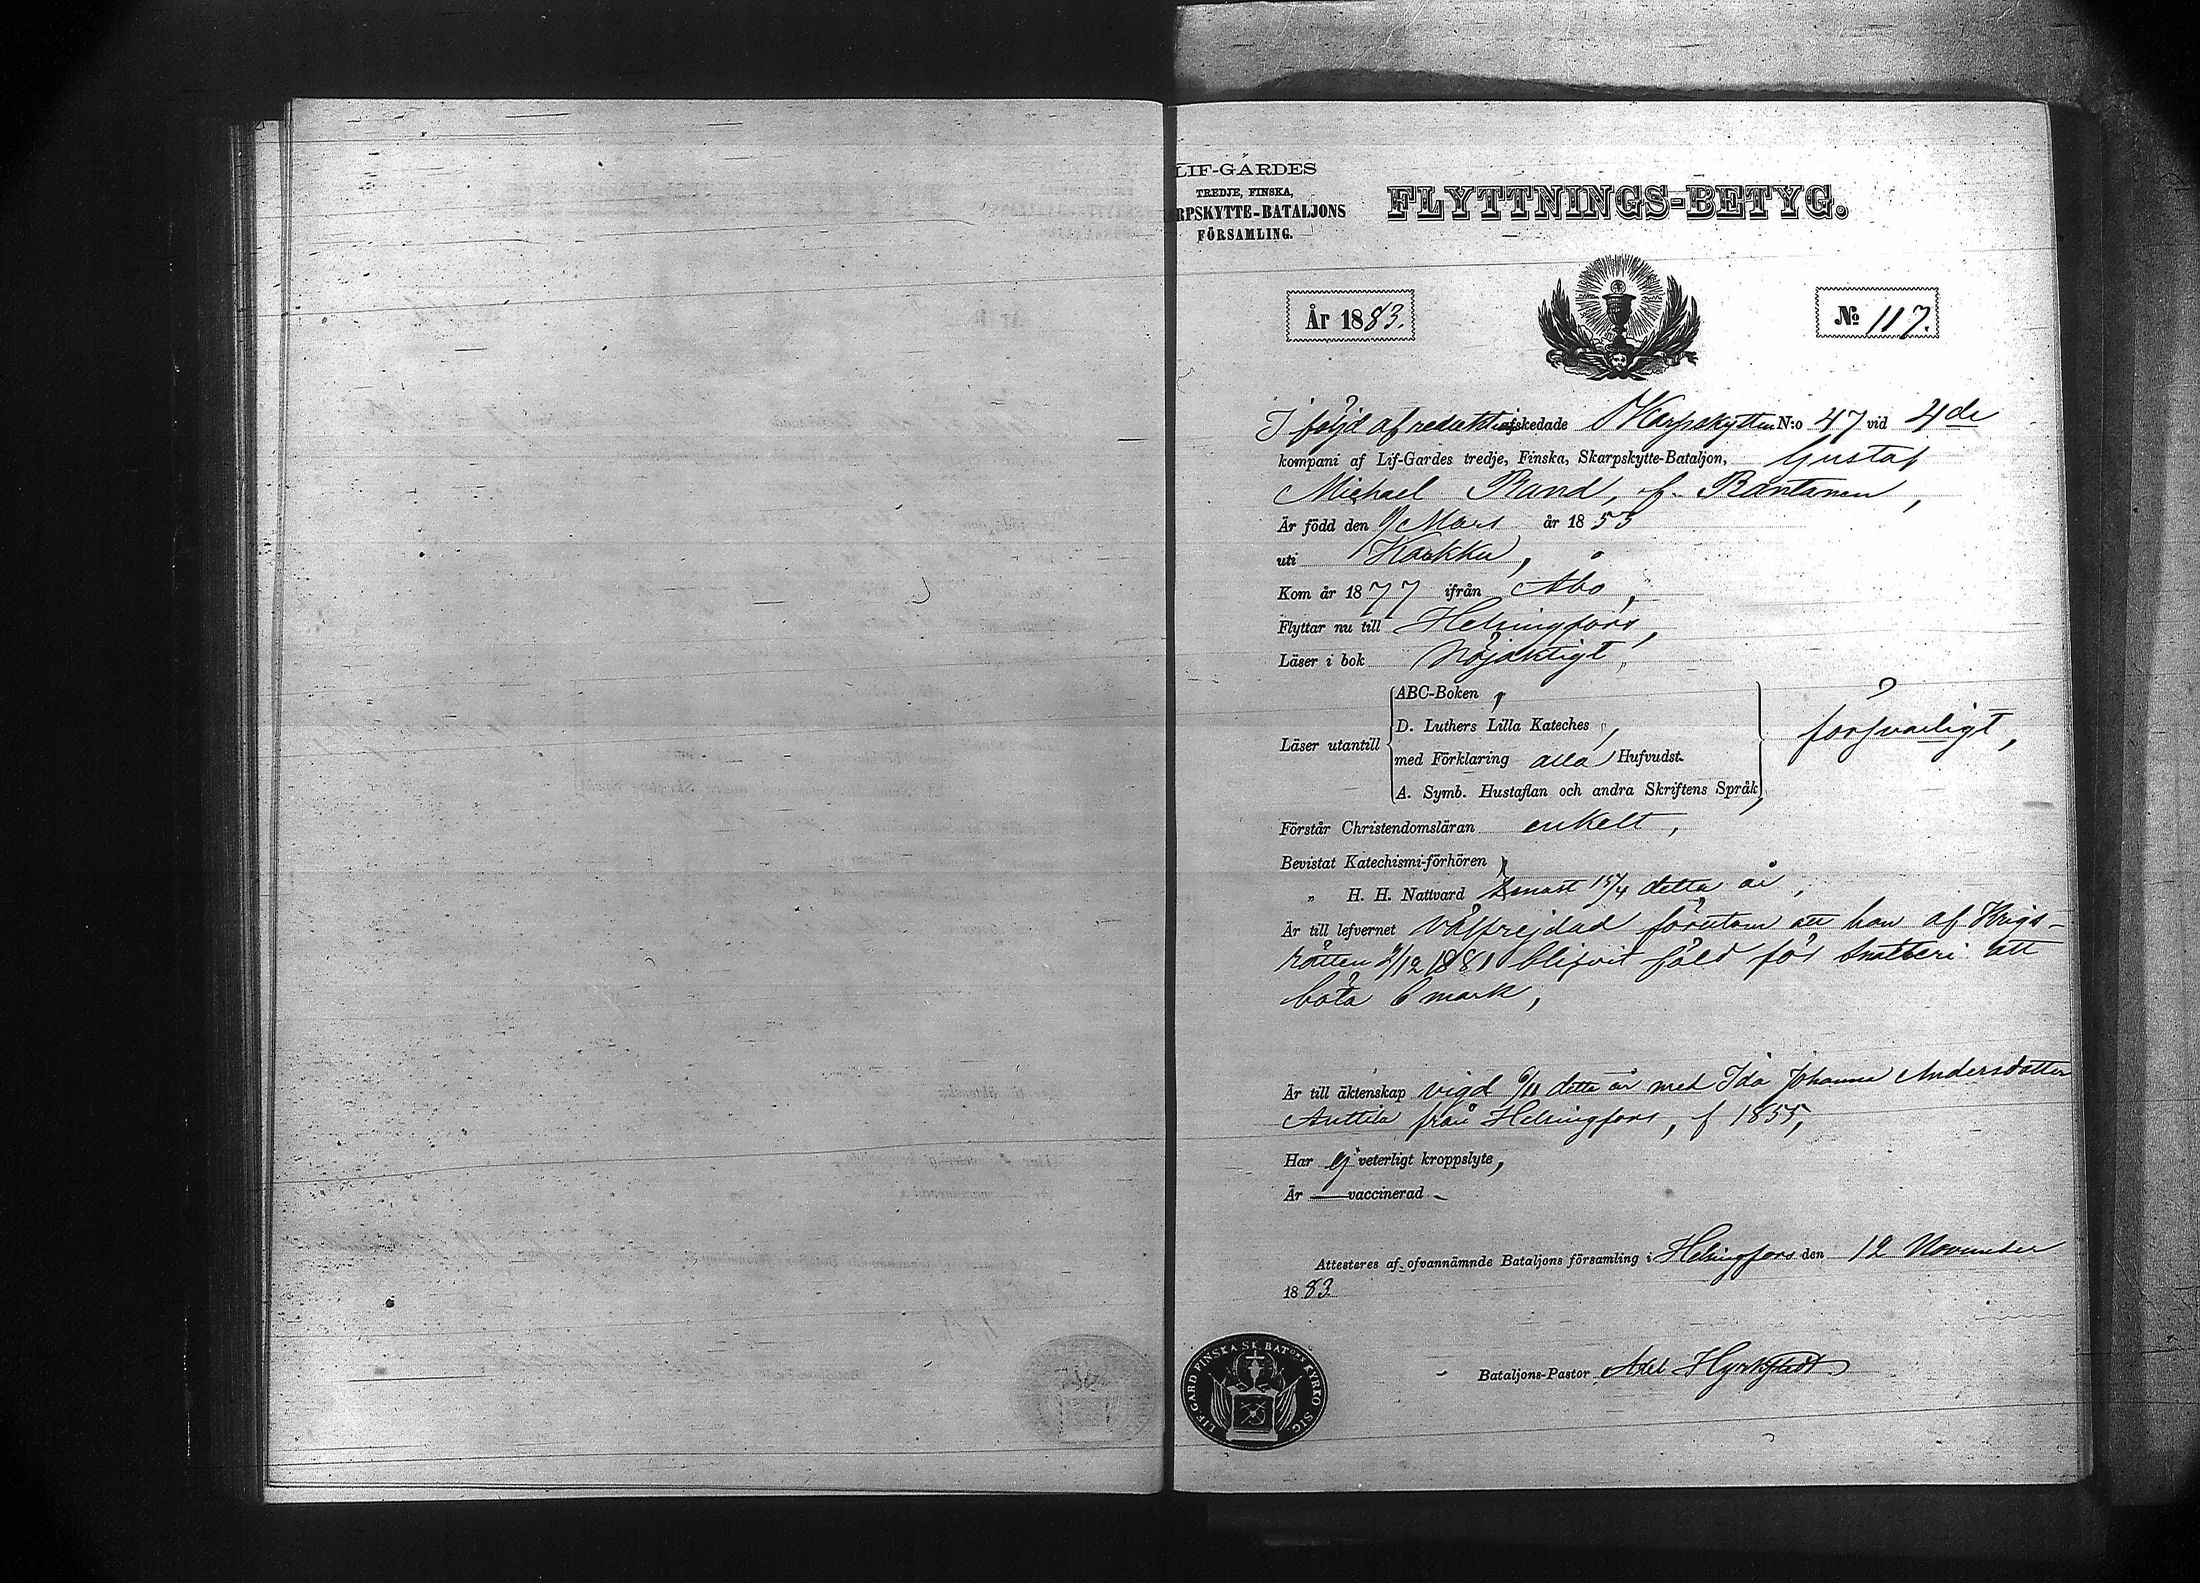 LIF-GARDES
TREDJE, FINSKA,
RPSKYTTE-BATALJONS
FÖRSAMLING.
FLYTTNINGS-BETYG.
År 1883.
No 117.
I följd af afskedade Skarpskytten N:o 47 vid 4de
kompani af Lif-Gardes tredje, Finska, Skarpskytte-Bataljon, Gustaf
Michael Rand, f. Rantanen,
Är född den Mars år 1853
uti Karkku,
Kom år 1877 ifrån Åbo,
Flyttar nu till Helsingfors,
Läser i bok Nöjaktigt,
Läser utantill
ABC-Boken
D. Luthers Lilla Kateches
med Förklaring alla Hufvudst.
A. Symb. Hustaflan och andra Skriftens Språk
försvarligt,
Förstår Christendomsläran enkelt,
Bevistat Katechismi-förhören
„ H. H. Nattvard senast 15/4 detta år,
Är till lefvernet välfrejdad förutom att han af Krigs-
rätten /12 1881 blifvit fäld för snatteri att
böta 6 mark,
Är till äktenskap vigd detta år med Ida Johanna Andersdotter
Anttila från Helsingfors, f 1855,
Har ej veterligt kroppslyte,
Är — vaccinerad
Attesteres af ofvannämnde Bataljons församling i Helsingfors den 12 November
1883
Bataljons-Pastor Axel Hyrkstedt
LIF-GARD. FINSKA SK. BATONS KYRKO SIG.